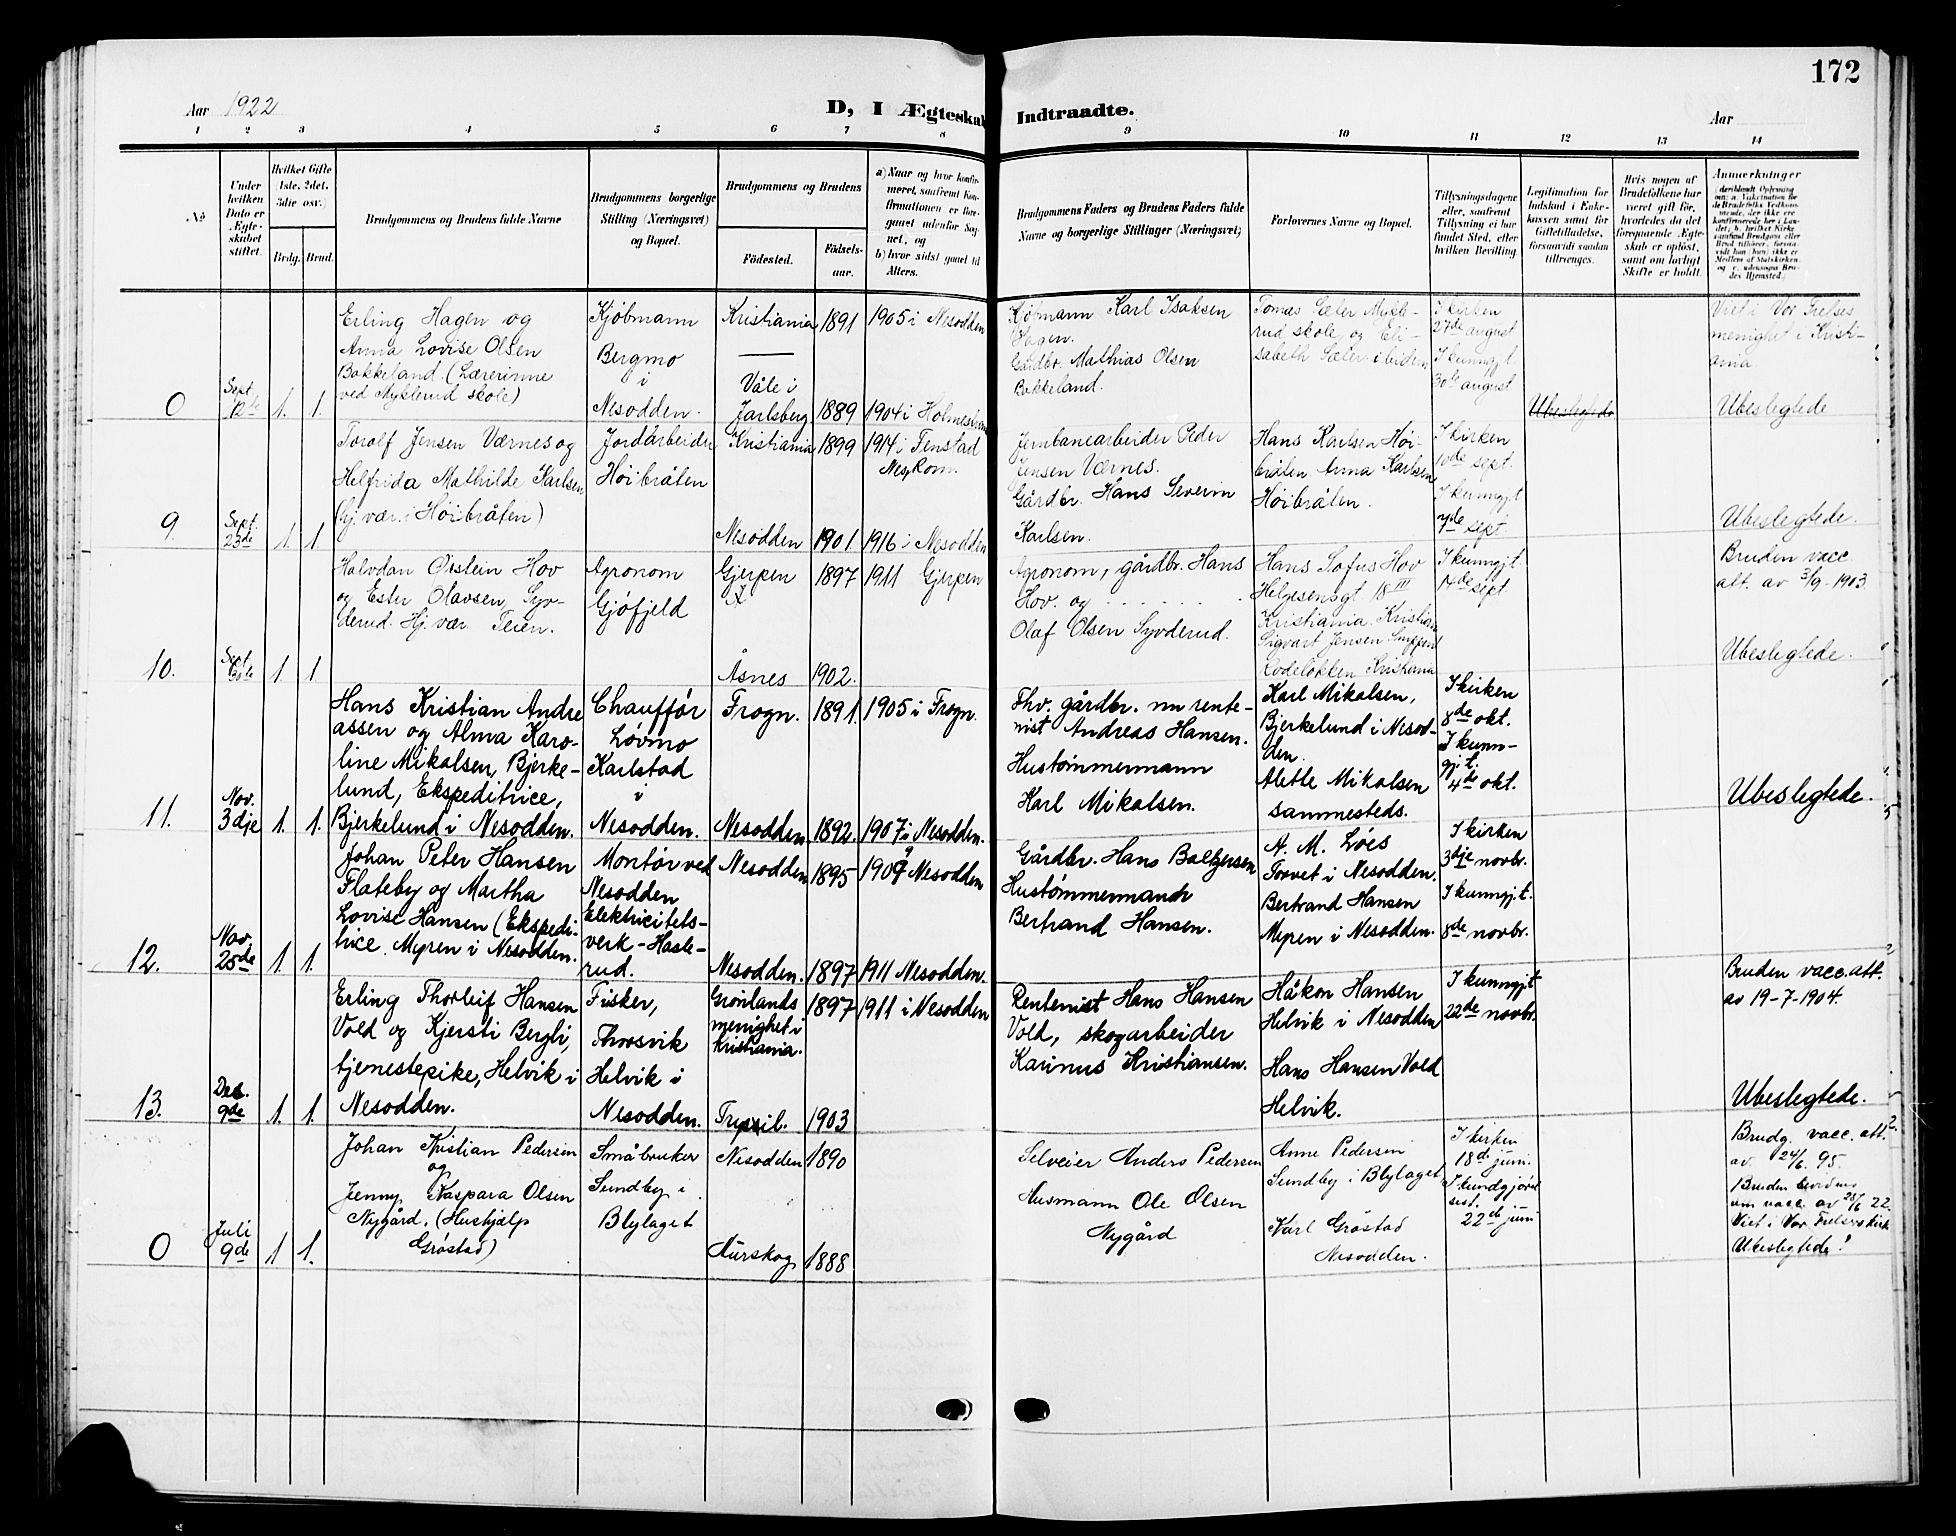 172
Aar 1922
D, I Ægteskab Indtraadte.
Aar
1 2 3 4 5 6 7 8 9 10 11 12 13 14
No
Under hvilken Dato er Ægteskabet stiftet.
Hvilket Gifte 1ste, 2det, 3die osv.)
Brdg. Brud.
Brudgommens og Brudens fulde Navne
Brudgommens borgerlige Stilling (Næringsvei) og Bopæl.
Brudgommens og Brudens
Fødested.
Fødselsaar.
a) Naar og hvor konfirmeret, saafremt Konfirmationen er foregaaet udenfor Sognet, og
b) hvor sidst gaaet til Alters.
Brudgommens Faders og Brudens Faders fulde Navne og borgerlige Stillinger (Næringsvei)
Forlovernes Navne og Bopæl.
Tillysningsdagene eller, saafremt Tillysning ei har fundet Sted, efter hvilken Bevilling.
Legitimation for Indskud i Enkekassen samt for Giftetilladelse, forsaavidt saadan tiltrænges.
Hvis nogen af Brudefolkene har været gift før, hvorledes da det foregaaende Ægteskab er opløst, samt om lovligt Skifte er holdt.
Anmærkninger
0
Sept. 12te
1. 1.
Erling Hagen og
Anna Lovise Olsen
Bakkeland (Lærerinne
ved Myklerud skole)
Kjøbmann
Bergmo
i
Nesodden.
Kristiania 1891 1905 i Nesodden
Våle i
Jarlsberg 1889 1904 i Holmestrand
Kjøbmann Karl Isaksen
Hagen.
Gårdbr. Mathias Olsen
Bakkeland.
Tomas Sæler Mykle-
rud skole og Eli-
sabeth Sæler ibiden
I kirken
27de august
I kunngjt
30te august
Ubeslegtede
Viet i Vor Frelses
menighet i Kristi-
ania
Ubeslegtede
9.
Sept. 23de
1. 1
Toralf Jensen Værnes og
Helfrida Mathilde Karlsen
(hj. vær. i Høibråten)
Jordarbeider
Høibråten
Kristiania 1899 1914 i Fenstad
Nes, Rom.
Nesodden 1901 1916 i Nesodden
Jernbanearbeider Peder
Jensen Værnes.
Gårdbr. Hans Severin
Karlsen.
Hans Karlsen Høi-
bråten Anna Karlsen
Høibråten.
I kirken
10de sept.
I kunngjt
7de sept.
Ubeslegtede.
10.
Sept. 30te
1 1
Halvdan Østein Hov
og Ester Olavsen, Syv-
derud. Hj. vær. Teien.
Agronom
Gjøfjeld
Gjerpen 1897 1911 Gjerpen
Åsnes 1902.
Agronom, gårdbr. Hans
Hov. og
Olaf Olsen Syvderud.
Hans Sofus Hov
Helgesensgt 18 III
Kristiania. Kristian
Sigvart Jensen
Rodeløkken Kristiania
I kunngjt.
14de sept.
Bruden vacc.
att. av 3/9-1903.
Ubeslegtede.
11.
Nov. 3dje
1. 1.
Hans Kristian Andre
assen og Alma Karo-
line Mikalsen, Bjerke-
lund, Ekspeditrice,
Bjerkelund i Nesodden.
Chauffør
Løvmo
Karlstad
i
Nesodden.
Frogn. 1891. 1905 i Frogn.
Nesodden. 1892. 1907 i Nesodden.
Fhv. gårdbr. nu rente-
nist Andreas Hansen.
Hustømmermann
Karl Mikalsen.
Karl Mikalsen,
Bjerkelund i Nesod-
den.
Alette Mikalsen
sammesteds.
I kirken
8de okt.
I kunn-
gjt.
4de okt.
Ubeslegtede.
12.
Nov. 25de
1 1.
Johan Peter Hansen
Flateby og Martha
Lovise Hansen (Ekspedi-
trice. Myren i Nesodden.
Montør ved
Nesodden
Elektricitets-
verk - Hasle-
rud.
Nesodden 1895 1909 Nesodden
Nesodden. 1897 1911 Nesodden.
Gårdbr. Hans Baltzersen
Hustømmermann
Bertrand Hansen.
A. M. Løes
Torvet i Nesodden.
Bertrand Hansen
Myren i Nesodden.
I kirken
3dje novbr.
I kunngjt.
8de novbr.
13.
Des. 9de
1 1.
Erling Thorleif Hansen
Vold og Kjersti Bergli,
tjenestepike, Helvik i
Nesodden.
Fisker,
Thorsvik
Helvik i
Nesodden.
Grønlands 1897 1911 i Nesodden
menighet i
Kristiania.
Trysil. 1903
Rentenist Hans Hansen
Vold, skogarbeider
Karinus Kristiansen.
Håkon Hansen
Helvik i Nesodden
Hans Hansen Vold
Helvik.
I kunngjt
22de novbr.
Bruden vacc. att.
av 19-7-1904.
Ubeslegtede.
0
Juli 9de
1 1.
Johan Kristian Pedersen
og
Jenny Kaspara Olsen
Nygård. (Hushjælp
Grøstad)
Småbruker
Sundby i
Blylaget
Nesodden 1890
Aurskog 1888
Selveier Anders Pedersen
Husmann Ole Olsen
Nygård
Anne Pedersen
Sundby i Blylaget
Karl Grøstad
Nesodden.
I kirken
18de juni.
I kundgjørelsest.
22de juni
Brudg. vacc. att.
av 24/6. 95.
Bruden bevidnes
om vacc. av 25/6 22.
Viet i Vor Frelsers kirke
Ubeslegtede!